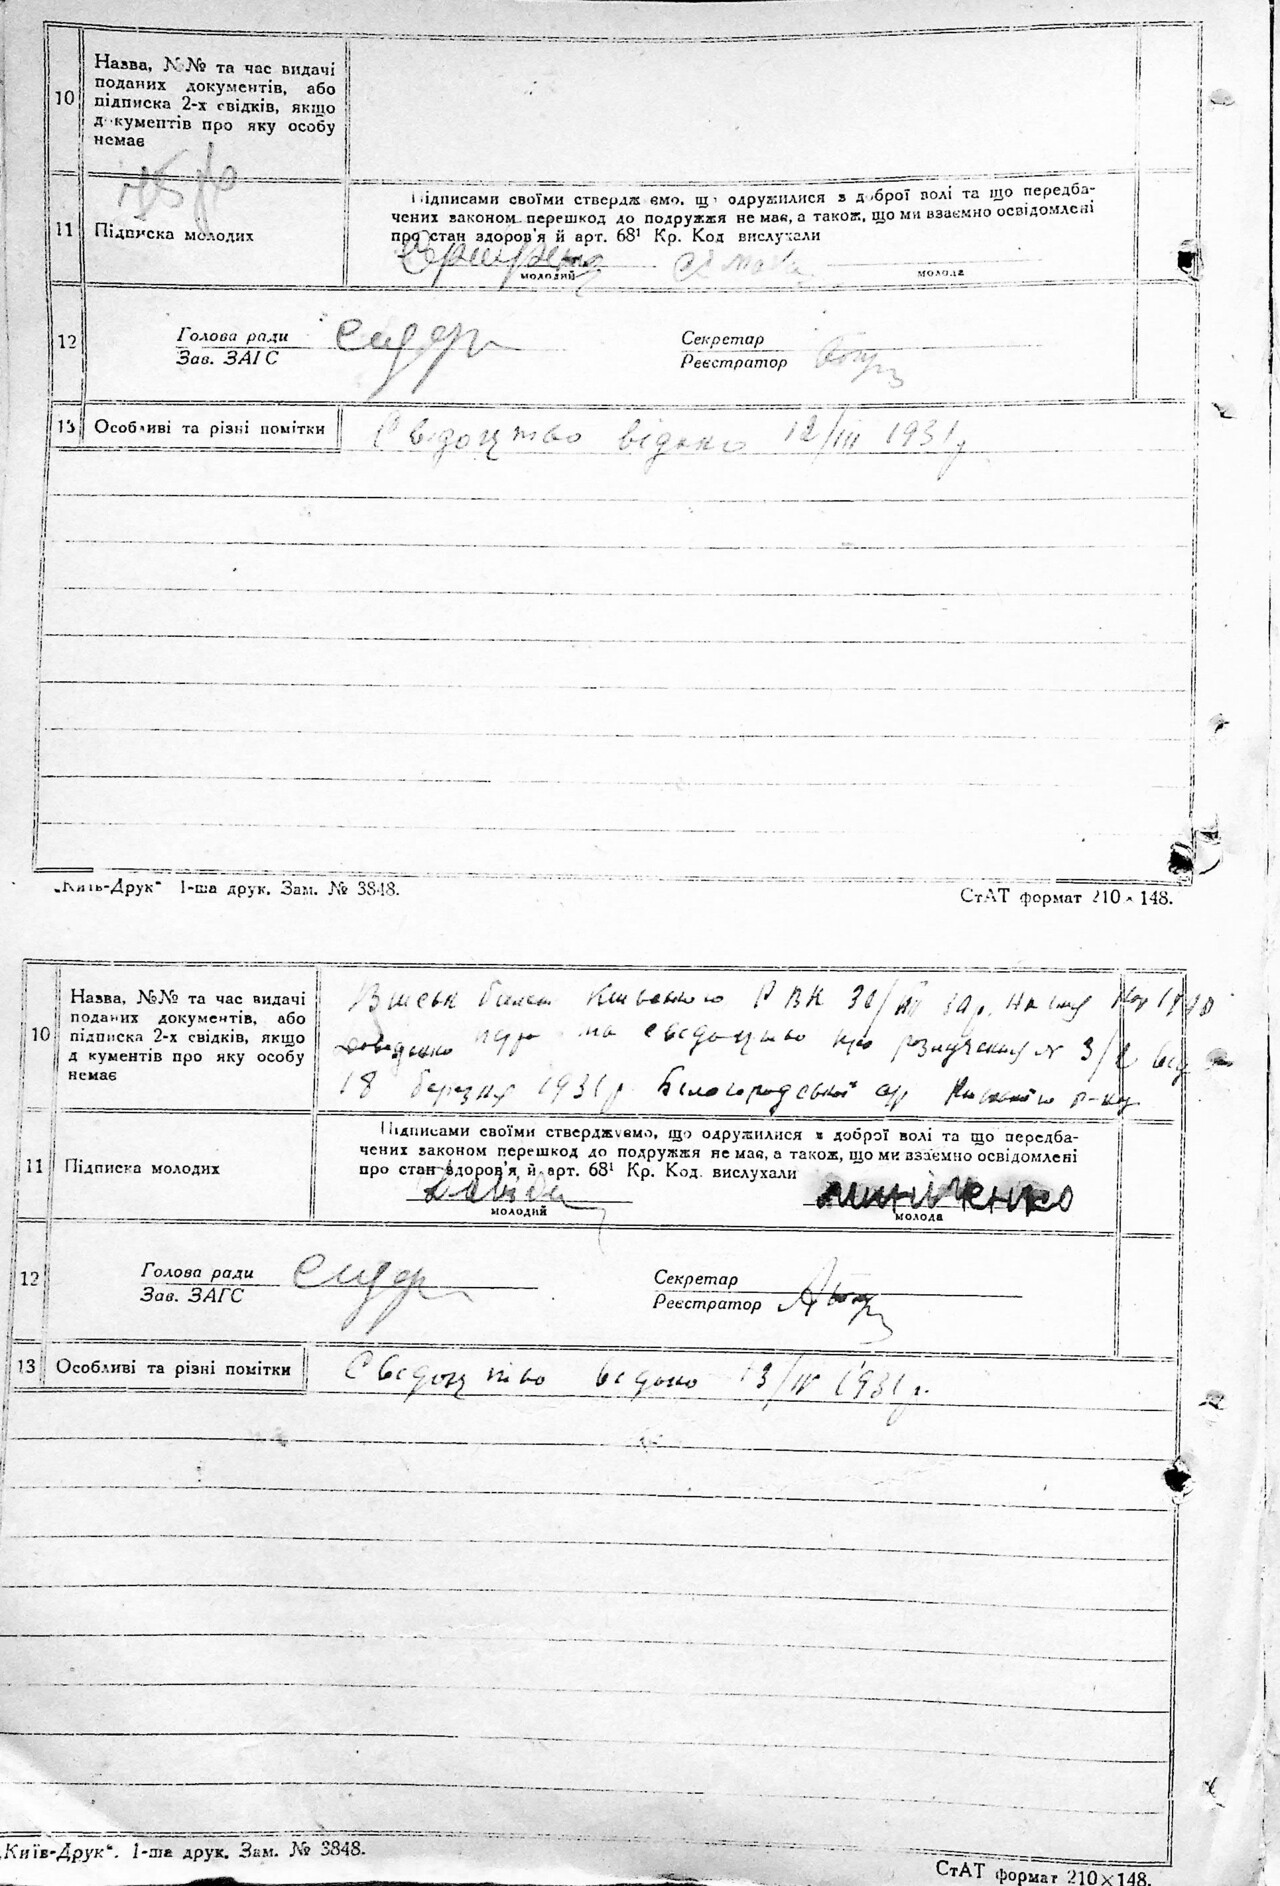 10
Назва, №№ та час видачі
поданих документів, або
підписка 2-х свідків, якщо
д кументів про яку особу
немає
11
Підписка молодих
Підписами своїми ствердж ємо, що одружилися з доброї волі та що передба-
чених законом перешкод до подружжя не має, а також, що ми взаємно освідомлені
про стан здоров'я й арт. 68¹ Кр. Код вислухали
молодий
молода
12
Голова ради
Зав. ЗАГС
Секретар
Реєстратор
13
Особливі та різні помітки
Свідоцтво видано 12/III 1931 р.
„Київ-Друк“ 1-ша друк. Зам. № 3848.
СтАТ формат 210×148.
10
Назва, №№ та час видачі
поданих документів, або
підписка 2-х свідків, якщо
д кументів про яку особу
немає
Військ білет Київського РВК
свідоцтво про розлучення № 3/2 від
18 березня 1931 р. Білогородської с/р Київського р-ну
11
Підписка молодих
Підписами своїми стверджуємо, що одружилися з доброї волі та що передба-
чених законом перешкод до подружжя не має, а також, що ми взаємно освідомлені
про стан здоров'я, й арт. 68¹ Кр. Код. вислухали
молодий
Миніченко
молода
12
Голова ради
Зав. ЗАГС
Секретар
Реєстратор
13
Особливі та різні помітки
Свідоцтво видано 13/IV 1931 р.
„Київ-Друк“. 1-ша друк. Зам. № 3848.
СтАТ формат 210×148.